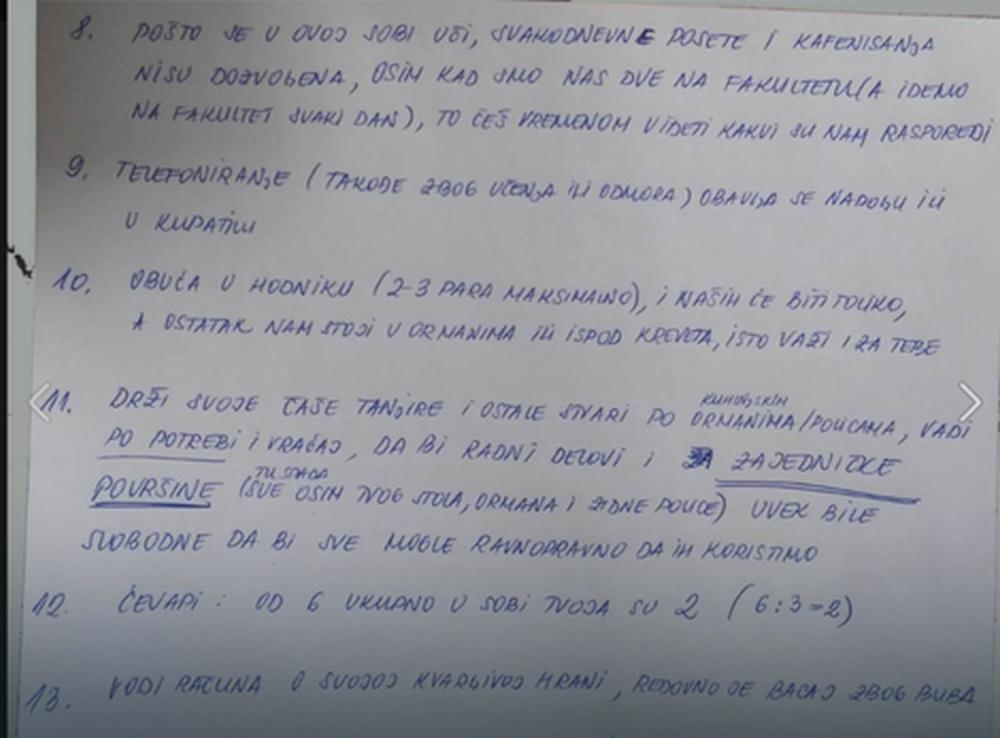 8. POŠTO SE U OVOJ SOBI UČI, SVAKODNEVNE POSETE I KAFENISANJA
NISU DOZVOLJENA, OSIM KAD SMO NAS DVE NA FAKULTETU (A IDEMO
NA FAKULTET SVAKI DAN), TO ĆEŠ VREMENOM VIDETI KAKVI SU NAM RASPOREDI
9. TELEFONIRANJE (TAKOĐE ZBOG UČENJA ILI ODMORA) OBAVLJA SE NAPOLJU ILI
U KUPATILU
10. OBUĆA U HODNIKU (2-3 PARA MAKSIMALNO), I NAŠIH ĆE BITI TOLIKO,
A OSTATAK NAM STOJI U ORMANIMA ILI ISPOD KREVETA, ISTO VAŽI I ZA TEBE
KUHINJSKIM
11. DRŽI SVOJE ČAŠE TANJIRE I OSTALE STVARI PO ORMANIMA/POLICAMA, VADI
PO POTREBI I VRAĆAJ, DA BI RADNI DELOVI I ZAJEDNIČKE
TU SPADA
POVRŠINE (SVE OSIM TVOG STOLA, ORMANA I ZIDNE POLICE) UVEK BILE
SLOBODNE DA BI SVE MOGLE RAVNOPRAVNO DA IH KORISTIMO
12. ČEVAPI: OD 6 UKUPNO U SOBI TVOJA SU 2 (6:3=2)
13. VODI RAČUNA O SVOJOJ KVARLJIVOJ HRANI, REDOVNO JE BACAJ ZBOG BUBA